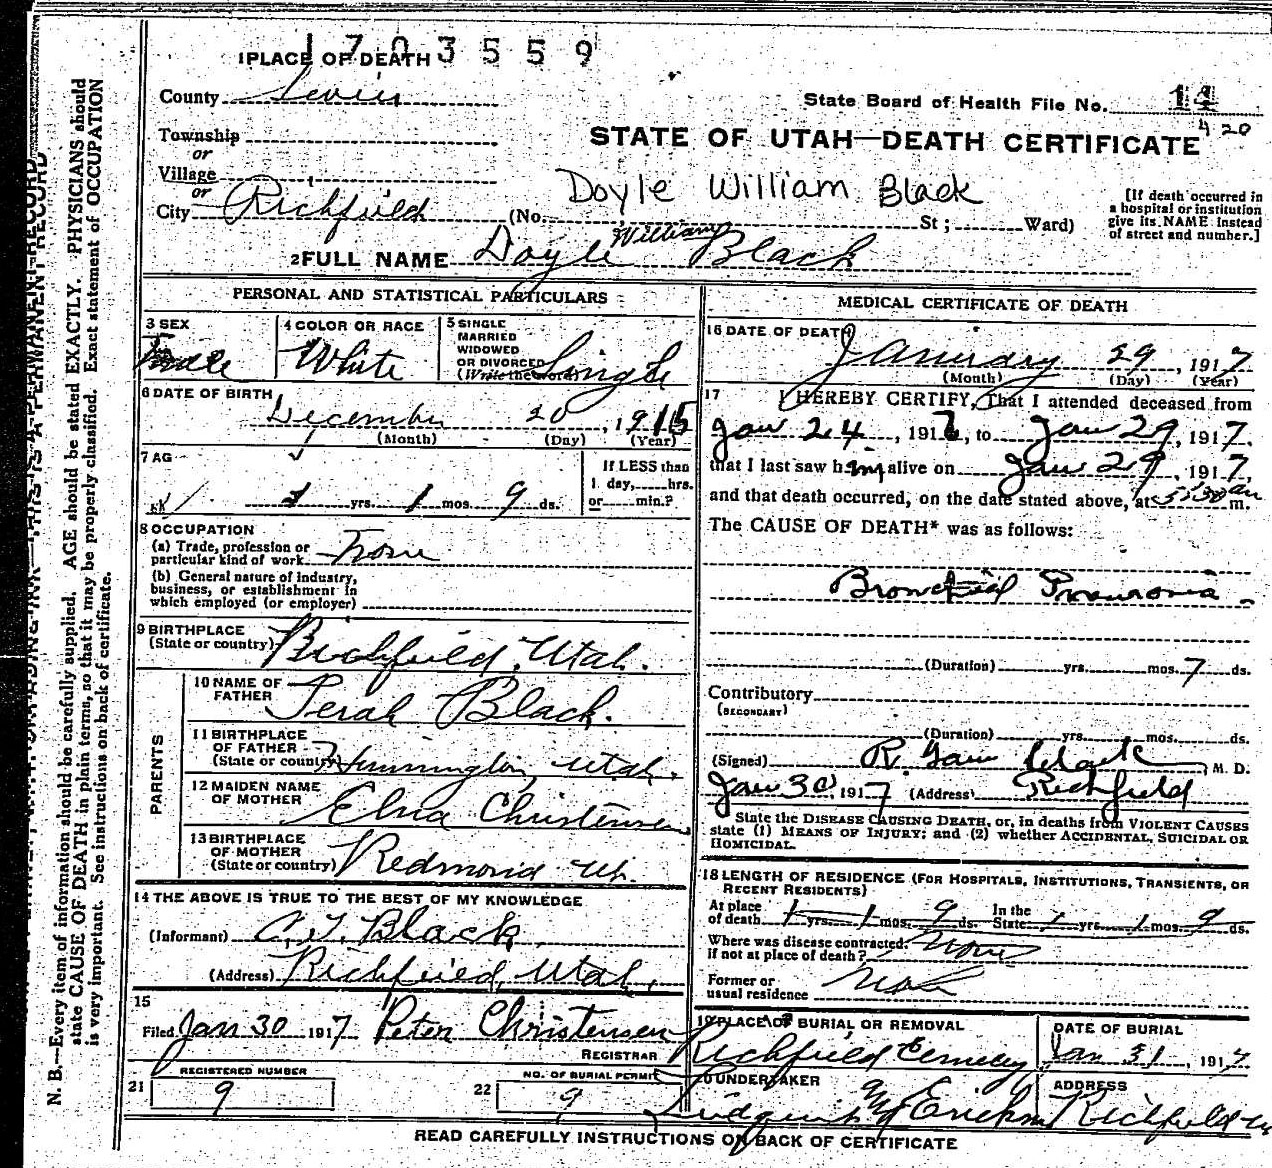 1703559
1 PLACE OF DEATH
County Sevier
State Board of Health File No. 14
420
Township
or
Village
or
City Richfield
STATE OF UTAH—DEATH CERTIFICATE
Doyle William Black
(No. St; Ward)
[If death occurred in
a hospital or institution
give its NAME instead
of street and number.]
2 FULL NAME Doyle William Black
PERSONAL AND STATISTICAL PARTICULARS
3 SEX
male
4 COLOR OR RACE
White
5 SINGLE
MARRIED
WIDOWED
OR DIVORCED
(Write the word)
Single
6 DATE OF BIRTH
December 20, 1915
(Month) (Day) (Year)
7 AG
1 yrs. 1 mos. 9 ds.
If LESS than
1 day, hrs.
or min.?
8 OCCUPATION
(a) Trade, profession or
particular kind of work None
(b) General nature of industry,
business, or establishment in
which employed (or employer)
9 BIRTHPLACE
(State or country) Richfield, Utah.
PARENTS
10 NAME OF
FATHER Perah Black.
11 BIRTHPLACE
OF FATHER
(State or country) Hunnington, Utah,
12 MAIDEN NAME
OF MOTHER Elna Christensen
13 BIRTHPLACE
OF MOTHER
(State or country) Redmond Ut.
14 THE ABOVE IS TRUE TO THE BEST OF MY KNOWLEDGE
(Informant) C. J. Black
(Address) Richfield, Utah,
15
Filed Jan 30 1917 Peter Christensen
REGISTRAR
21 REGISTERED NUMBER
9
22 NO. OF BURIAL PERMIT
9
MEDICAL CERTIFICATE OF DEATH
16 DATE OF DEATH
January 29, 1917
(Month) (Day) (Year)
17 I HEREBY CERTIFY, That I attended deceased from
Jan 24, 1917, to Jan 29, 1917.
that I last saw him alive on Jan 29, 1917,
and that death occurred, on the date stated above, at 5:30 am m.
The CAUSE OF DEATH* was as follows:
Bronchial Pneumonia
(Duration) yrs. mos. 7 ds.
Contributory
(SECONDARY)
(Duration) yrs. mos. ds.
(Signed) R. Gau Clark, M. D.
Jan 30, 1917 (Address) Richfield
State the DISEASE CAUSING DEATH, or, in deaths from VIOLENT CAUSES
state (1) MEANS OF INJURY; and (2) whether ACCIDENTAL, SUICIDAL OR
HOMICIDAL.
18 LENGTH OF RESIDENCE (FOR HOSPITALS, INSTITUTIONS, TRANSIENTS, OR
RECENT RESIDENTS)
At place
of death 1 yrs. 1 mos. 9 ds. In the
State 1 yrs. 1 mos. 9 ds.
Where was disease contracted
if not at place of death?
Former or
usual residence
19 PLACE OF BURIAL OR REMOVAL
Richfield Cemetery
DATE OF BURIAL
Jan 31, 1917
20 UNDERTAKER
ADDRESS
Richfield
READ CAREFULLY INSTRUCTIONS ON BACK OF CERTIFICATE
N. B.—Every item of information should be carefully supplied. AGE should be stated EXACTLY. PHYSICIANS should
state CAUSE OF DEATH in plain terms, so that it may be properly classified. Exact statement of OCCUPATION
is very important. See instructions on back of certificate.
THIS IS A PERMANENT RECORD